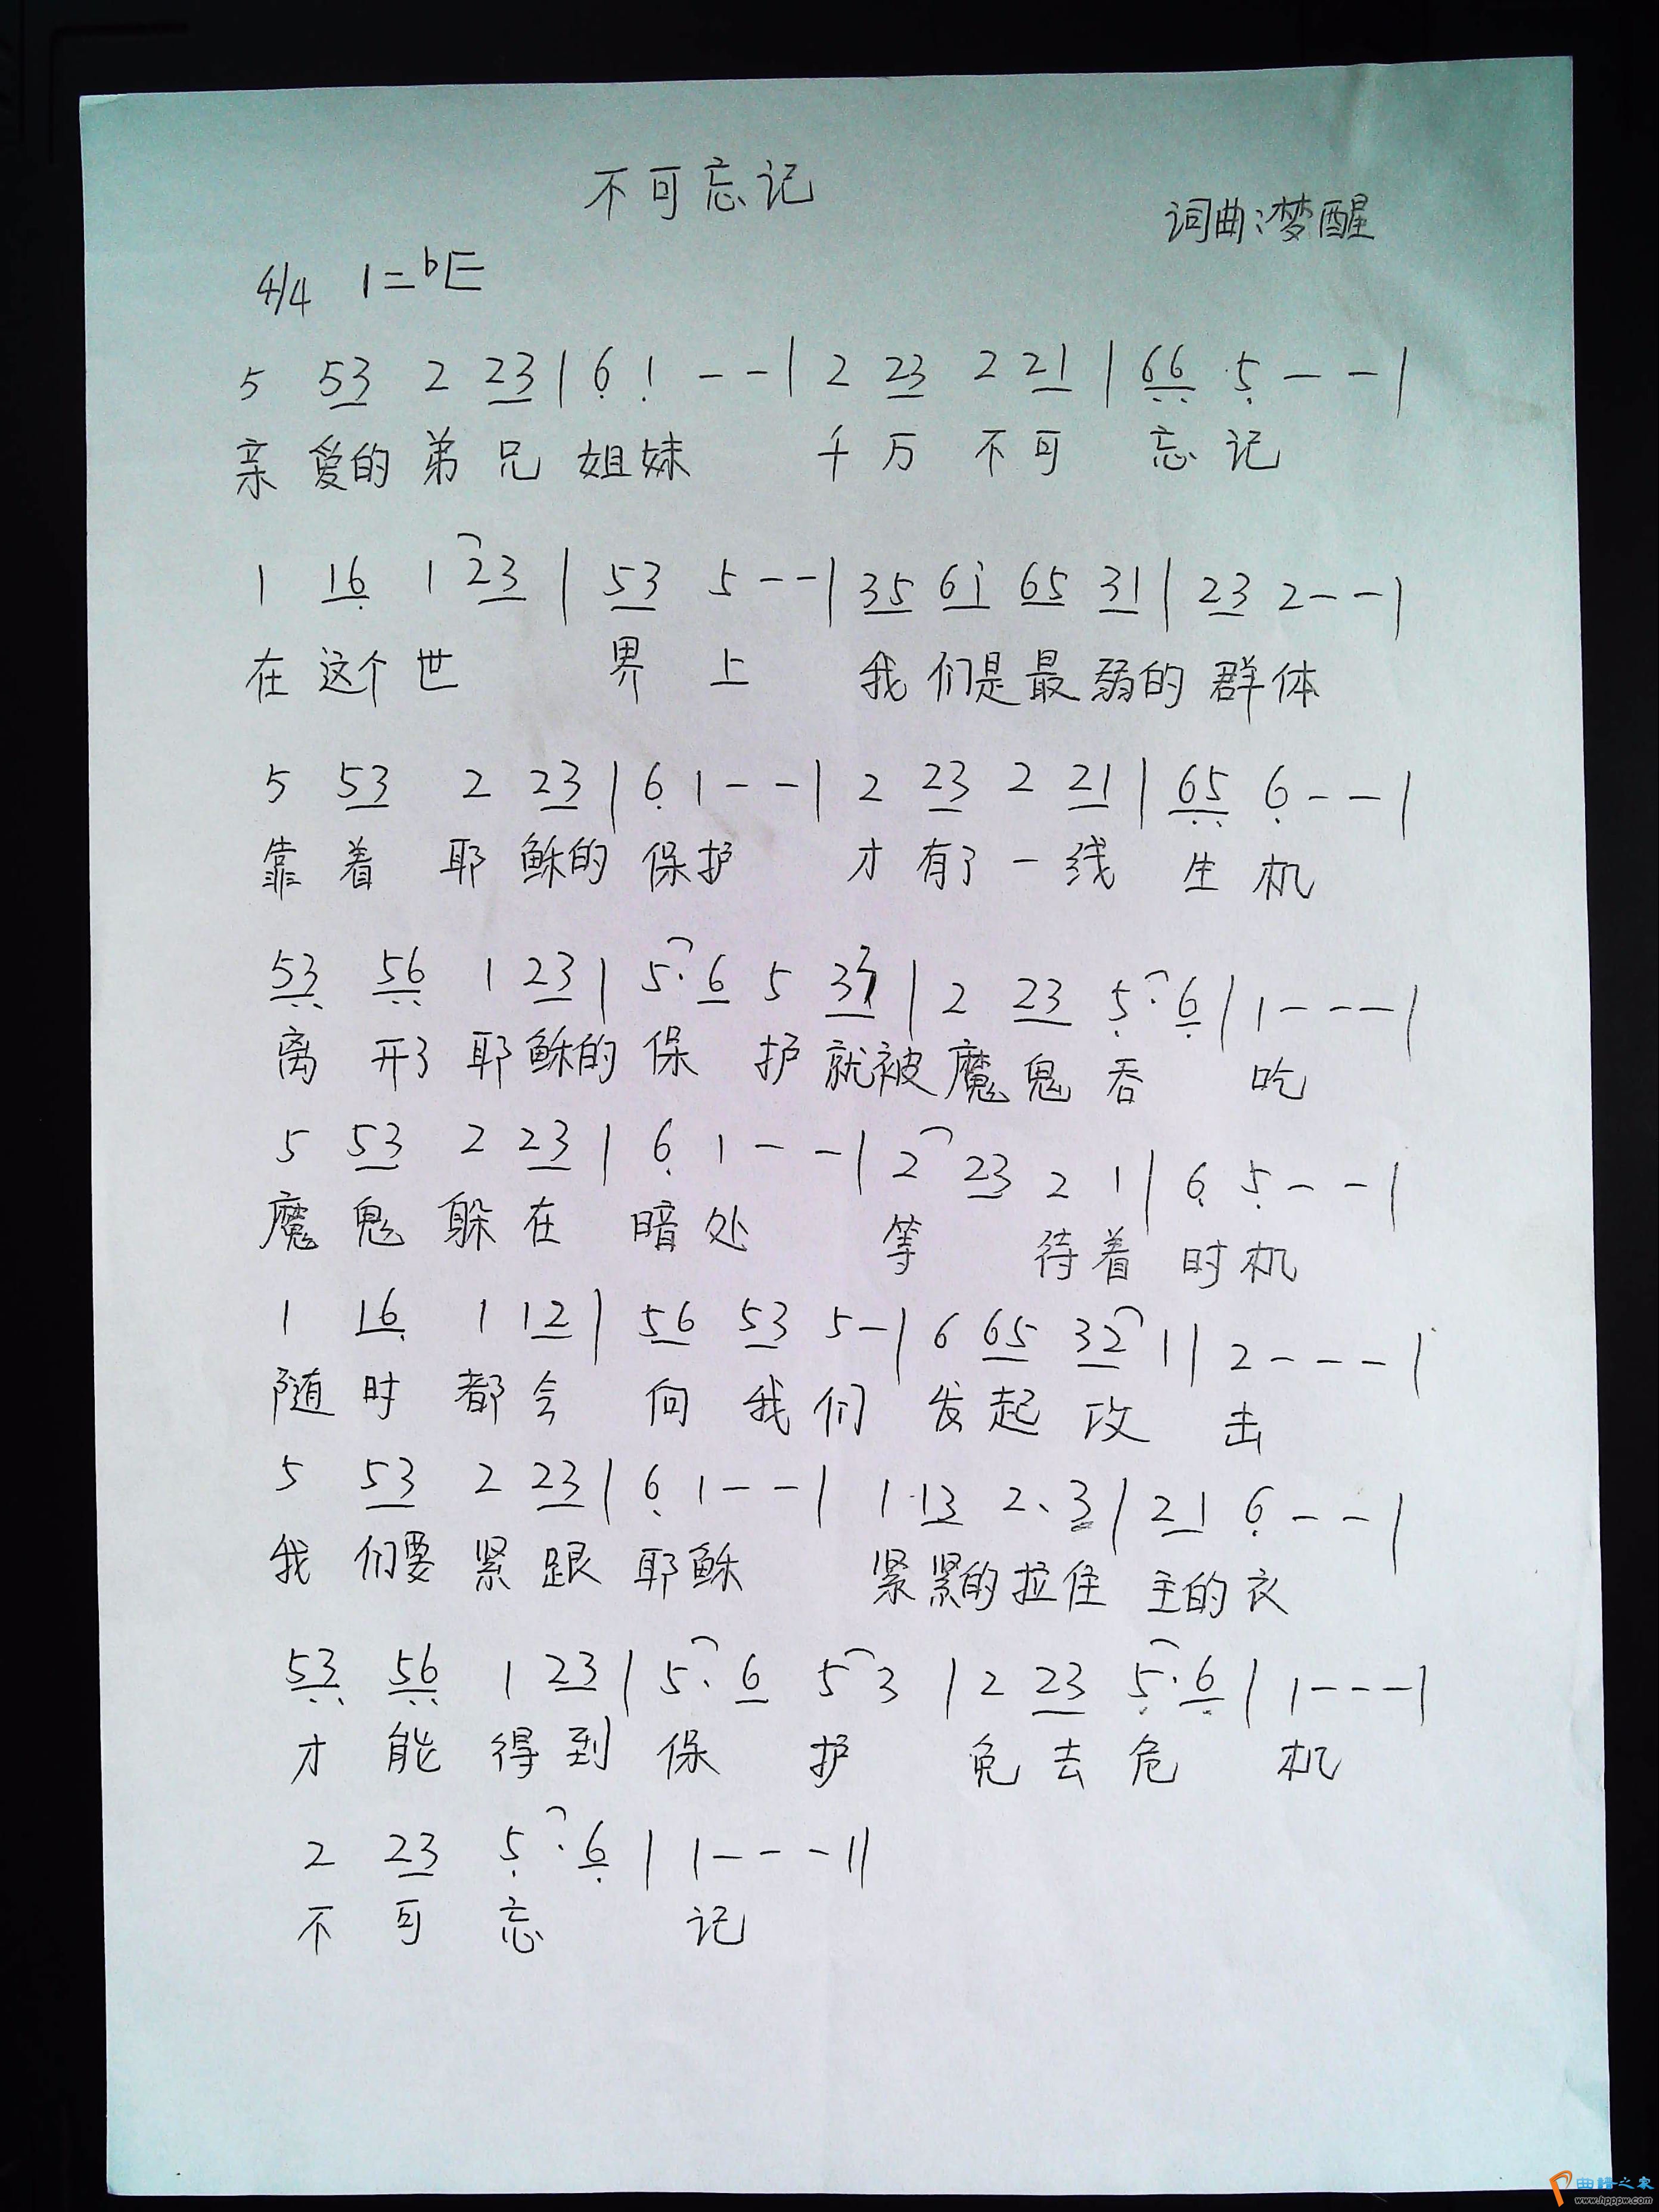 不可忘记
词曲:梦醒
4/4 1=bE
5 53 2 23 | 6 1 - - | 2 23 2 21 | 66 5 - - |
亲 爱的 弟 兄 姐妹 千万 不可 忘记
1 16 1 23 | 53 5 - - | 35 61 65 31 | 23 2 - - |
在 这个 世 界 上 我 们是 最 弱的 群体
5 53 2 23 | 6 1 - - | 2 23 2 21 | 65 6 - - |
靠 着 耶 稣的 保护 才 有了 一 线 生 机
53 56 1 23 | 5· 6 5 33 | 2 23 5· 6 | 1 - - - |
离 开了 耶 稣的 保 护 就被 魔 鬼 吞 吃
5 53 2 23 | 6 1 - - | 2 23 2 1 | 6 5 - - |
魔 鬼 躲 在 暗 处 等 待着 时机
1 16 1 12 | 56 53 5 - | 6 65 32 1 | 2 - - - |
随 时 都 会 向 我 们 发 起 攻 击
5 53 2 23 | 6 1 - - | 1·13 2·3 | 21 6 - - |
我 们要 紧 跟 耶 稣 紧 紧的 拉 住 主的 衣
53 56 1 23 | 5· 6 5 3 | 2 23 5· 6 | 1 - - - |
才 能 得 到 保 护 免 去 危 机
2 23 5· 6 | 1 - - - ||
不 可 忘 记
曲谱之家
www.hppw.com